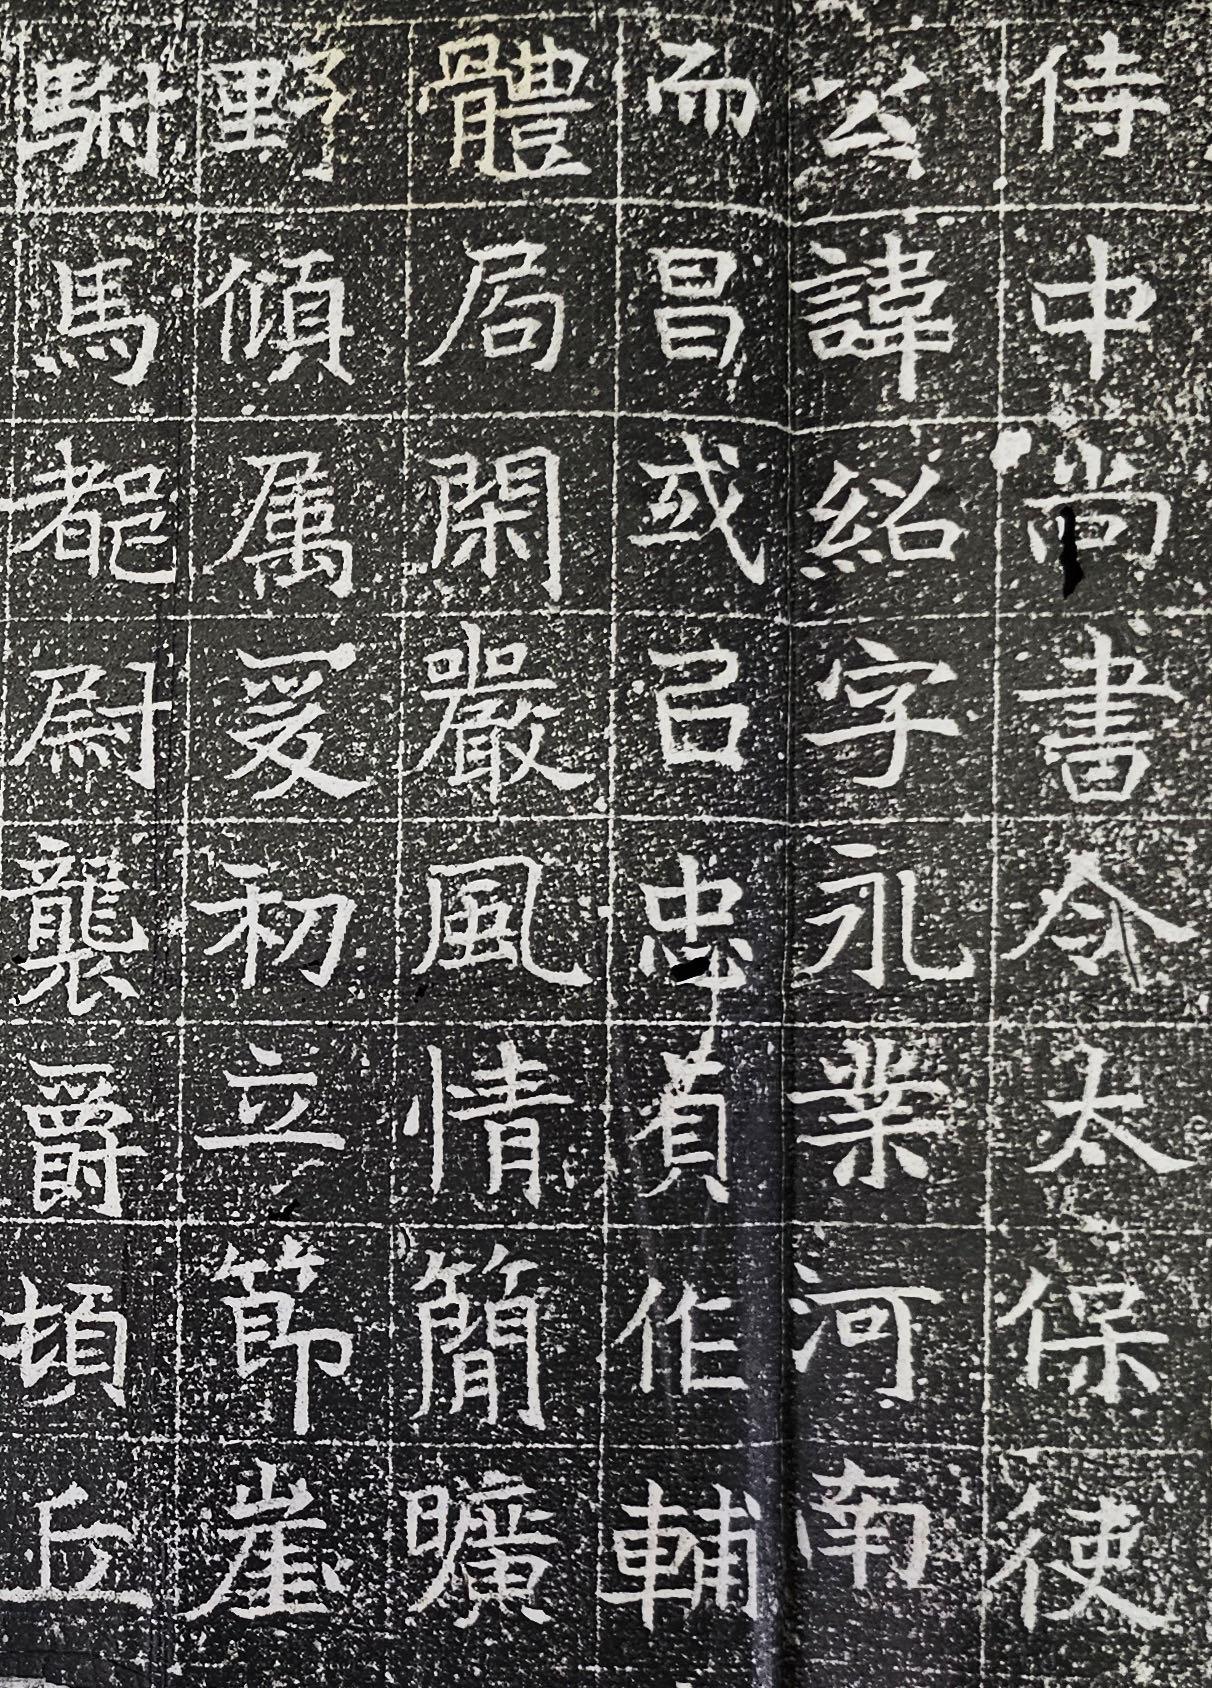 侍中尚書令太保使
公諱紹字永業河南
而昌或㠯忠貞作輔
體局閑嚴風情簡曠
野傾属爰初立節崖
駙馬都尉襲爵頓丘